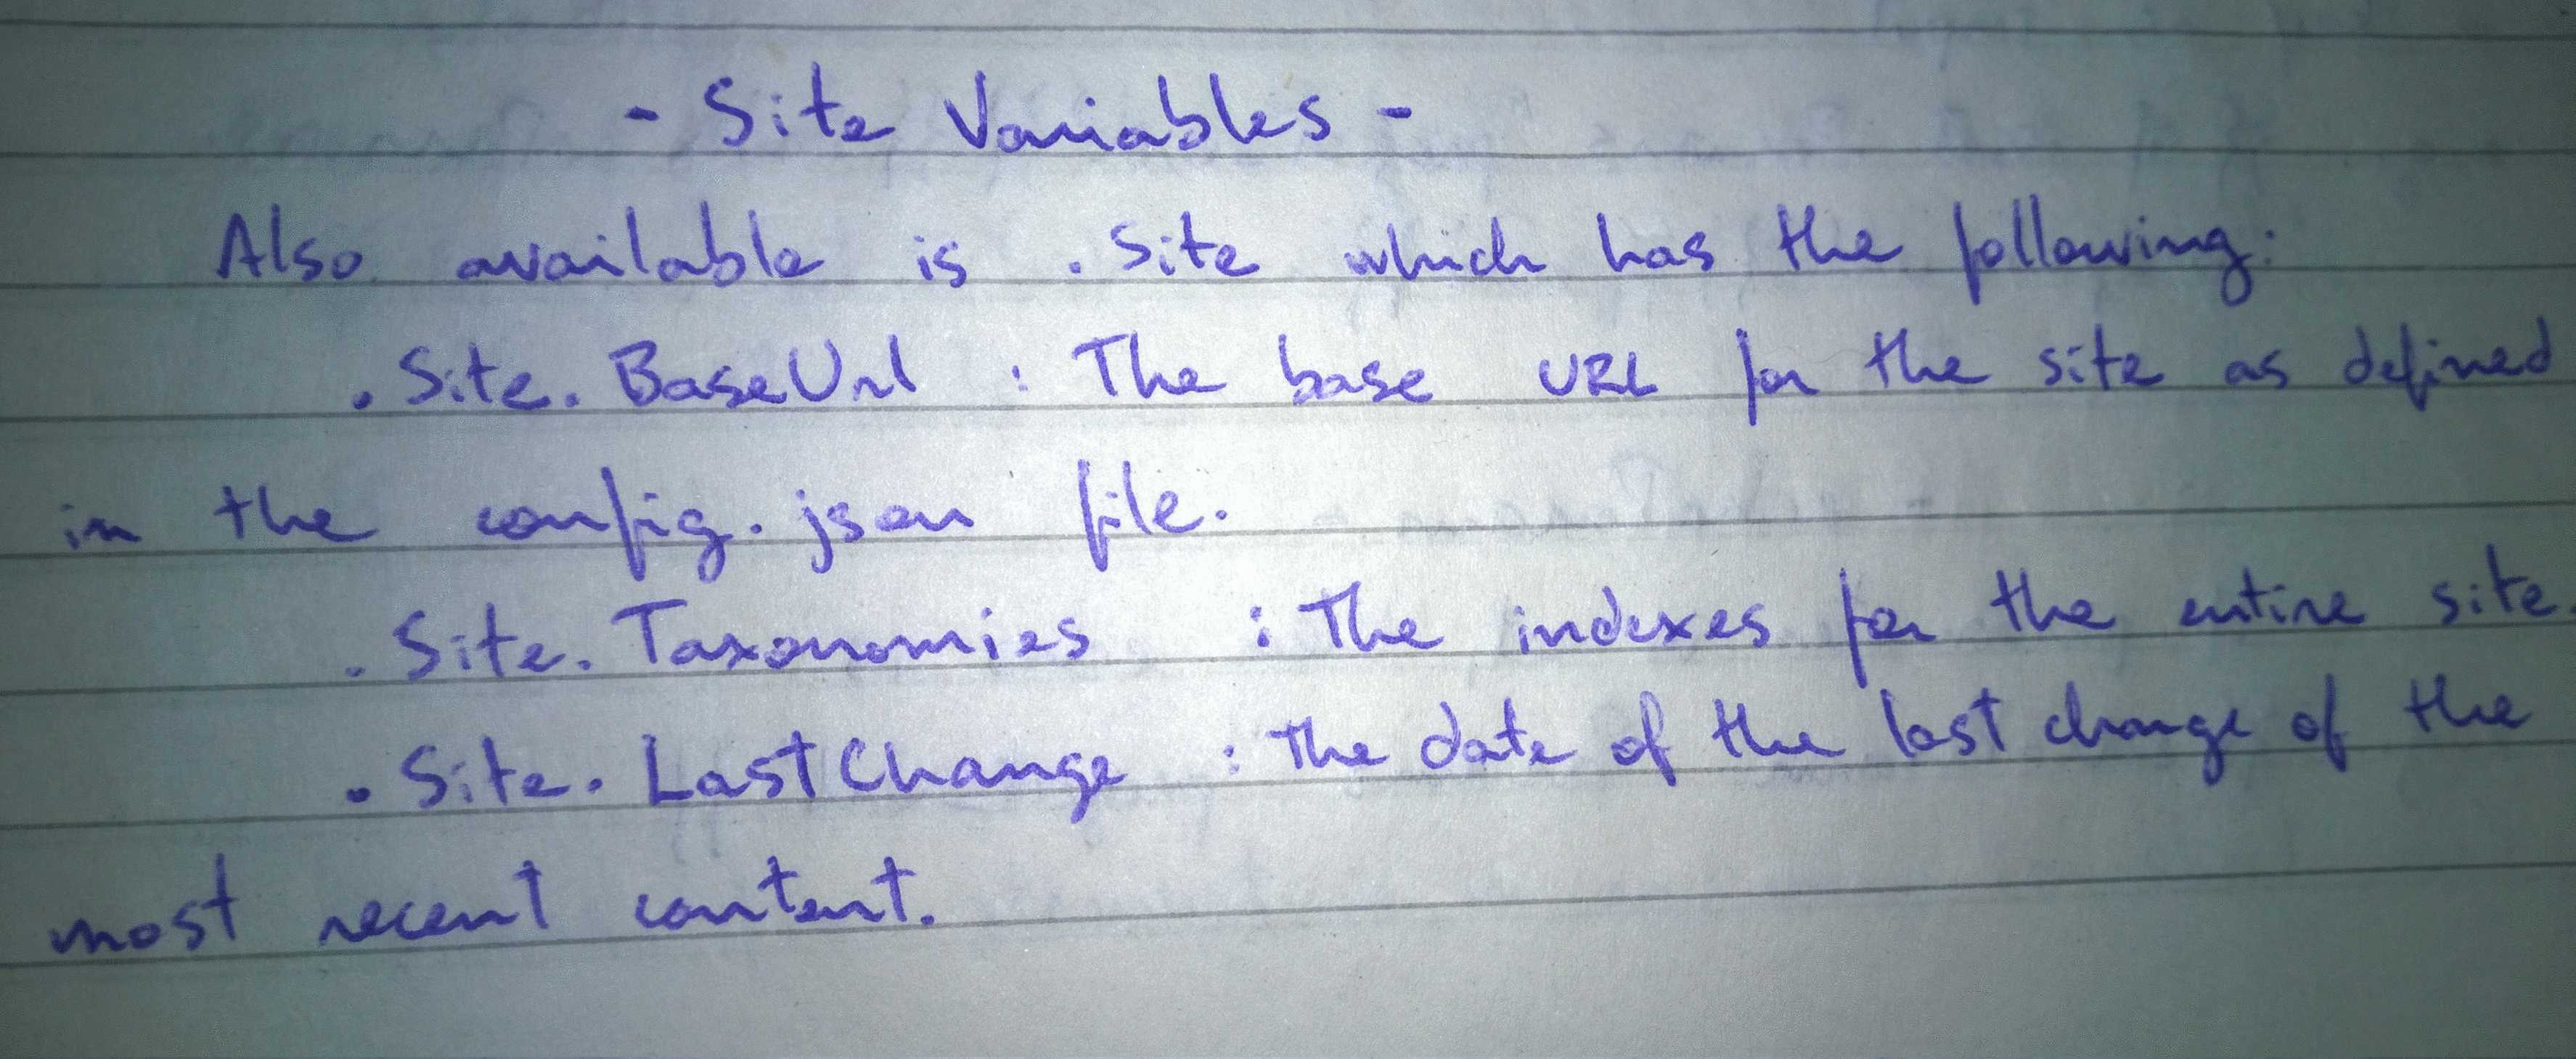 - Site Variables -
Also available is .Site which has the following:
.Site.BaseUrl : The base URL for the site as defined
in the config.json file.
.Site.Taxonomies : The indexes for the entire site.
.Site.LastChange : The date of the last change of the
most recent content.